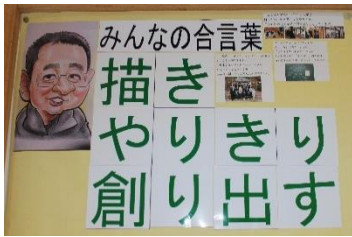 みんなの合言葉
描き
やりきり
創り出す